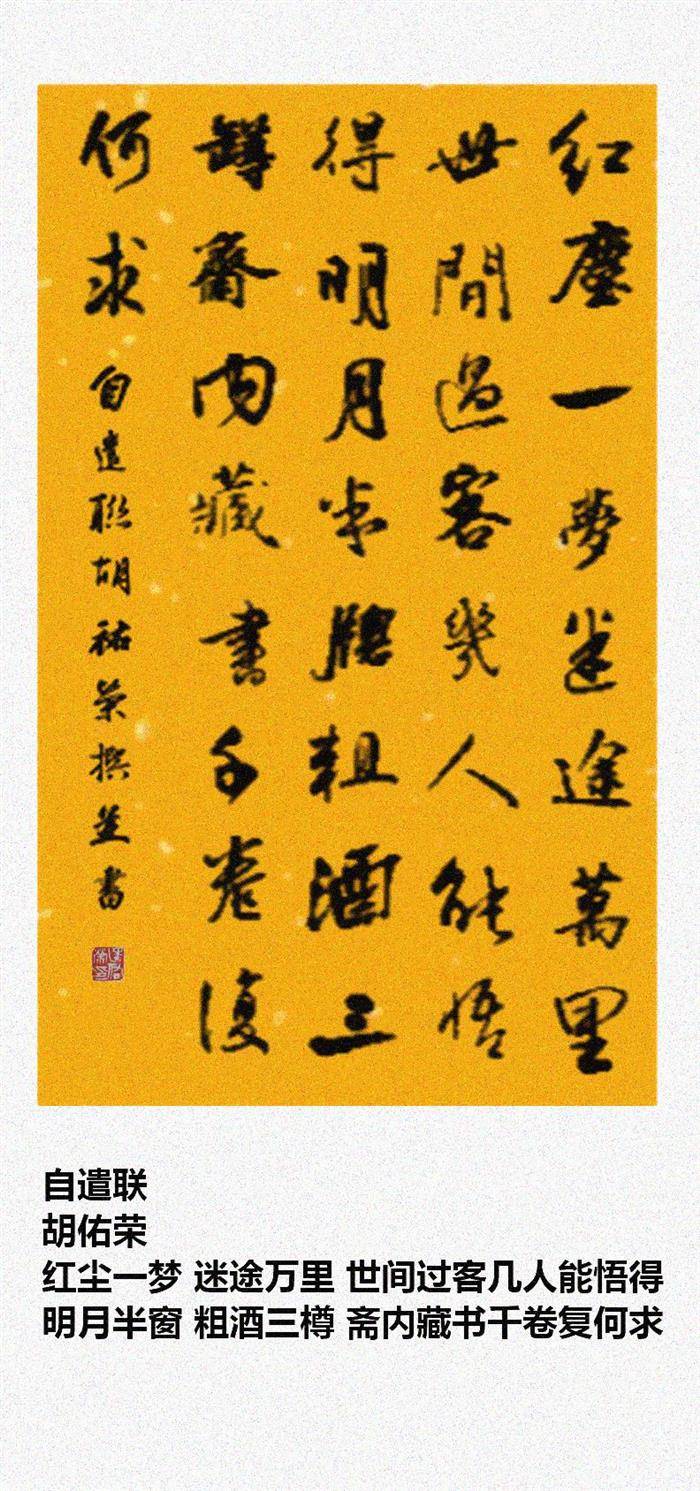 紅塵一夢迷途萬里
世間過客幾人能悟
得明月半牕粗酒三
罇齋内藏書千卷復
何求 自遣聯胡祐榮撰並書
自遣联
胡佑荣
红尘一梦 迷途万里 世间过客几人能悟得
明月半窗 粗酒三樽 斋内藏书千卷复何求